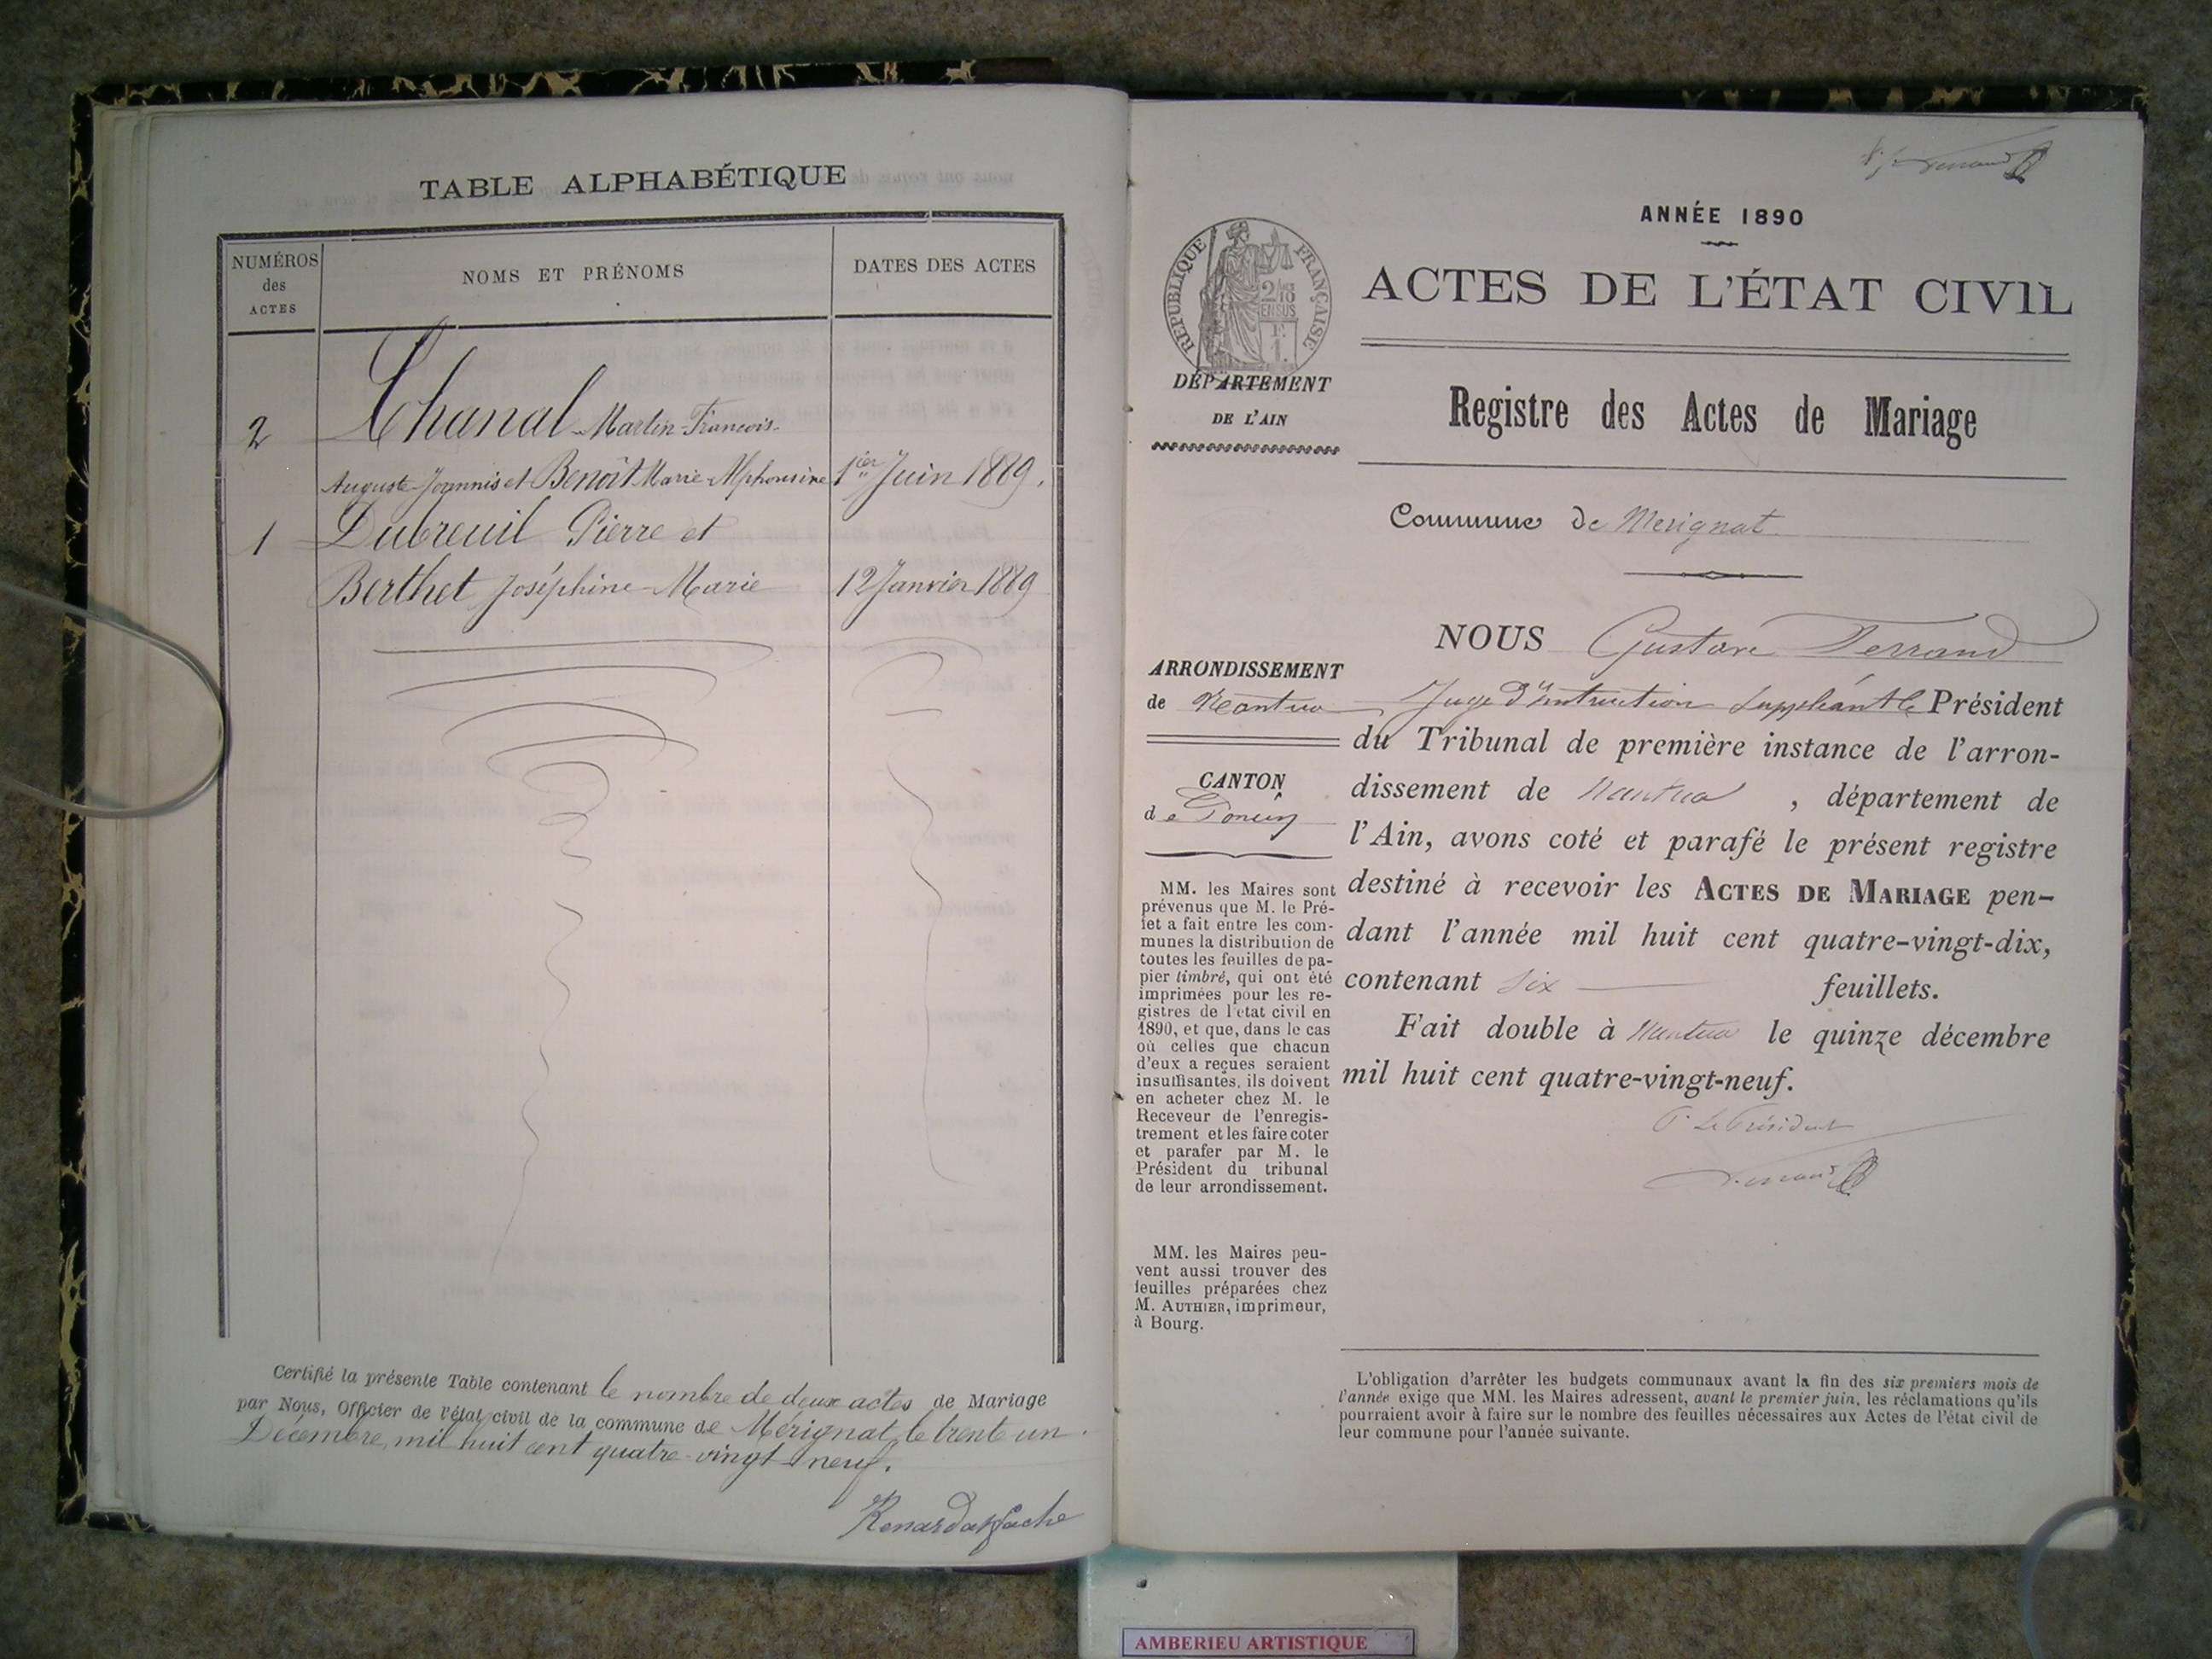 TABLE ALPHABÉTIQUE
NUMÉROS
des
ACTES
NOMS ET PRÉNOMS
DATES DES ACTES
2 Chanal Martin-François-
Auguste-Joannis et Benoît Marie-Alphonsine 1ier Juin 1889.
1 Dubreuil Pierre et
Berthet Joséphine-Marie 12 Janvier 1889
Certifié la présente Table contenant le nombre de deux actes de Mariage
par Nous, Officier de l'état civil de la commune de Mérignat, le trente un
Décembre, mil huit cent quatre-vingt-neuf.
ANNÉE 1890
RÉPUBLIQUE FRANÇAISE
ACTES DE L'ÉTAT CIVIL
DÉPARTEMENT
DE L'AIN
Registre des Actes de Mariage
Commune de Merignat
ARRONDISSEMENT
de Nantua
CANTON
de Poncin
MM. les Maires sont
prévenus que M. le Pré-
fet a fait entre les com-
munes la distribution de
toutes les feuilles de pa-
pier timbré, qui ont été
imprimées pour les re-
gistres de l'état civil en
1890, et que, dans le cas
où celles que chacun
d'eux a reçues seraient
insuffisantes, ils doivent
en acheter chez M. le
Receveur de l'enregis-
trement et les faire coter
et parafer par M. le
Président du tribunal
de leur arrondissement.
MM. les Maires peu-
vent aussi trouver des
feuilles préparées chez
M. AUTHIER, imprimeur,
à Bourg.
NOUS Gustave Ferrand
Juge d'instruction suppléant le Président
du Tribunal de première instance de l'arron-
dissement de Nantua, département de
l'Ain, avons coté et parafé le présent registre
destiné à recevoir les ACTES DE MARIAGE pen-
dant l'année mil huit cent quatre-vingt-dix,
contenant six feuillets.
Fait double à Nantua le quinze décembre
mil huit cent quatre-vingt-neuf.
P. Le Président
L'obligation d'arrêter les budgets communaux avant la fin des six premiers mois de
l'année exige que MM. les Maires adressent, avant le premier juin, les réclamations qu'ils
pourraient avoir à faire sur le nombre des feuilles nécessaires aux Actes de l'état civil de
leur commune pour l'année suivante.
AMBERIEU ARTISTIQUE